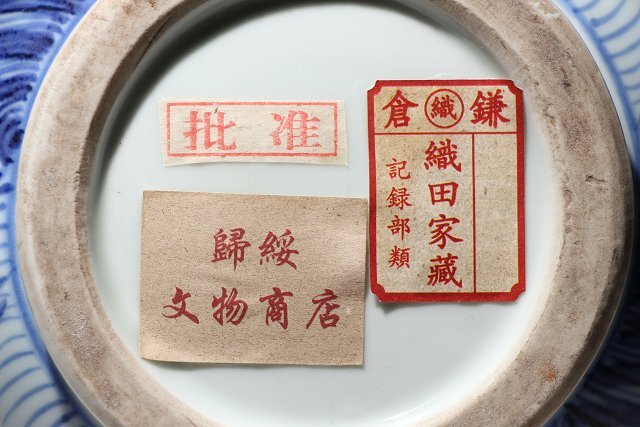 批准
歸綏
文物商店
倉織鎌
織田家藏
記録部類